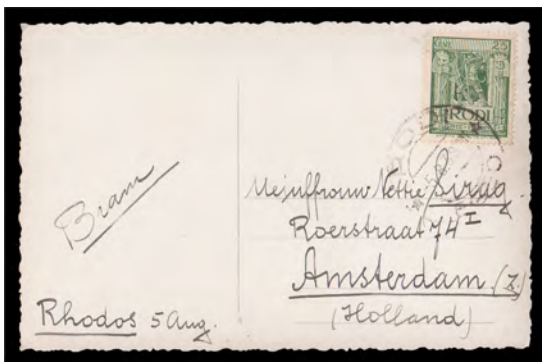 25
RODI
Bram
Rhodos 5 Aug.
Mejuffrouw Nettie Sirug
Roerstraat 74 I
Amsterdam (Z.)
(Holland)